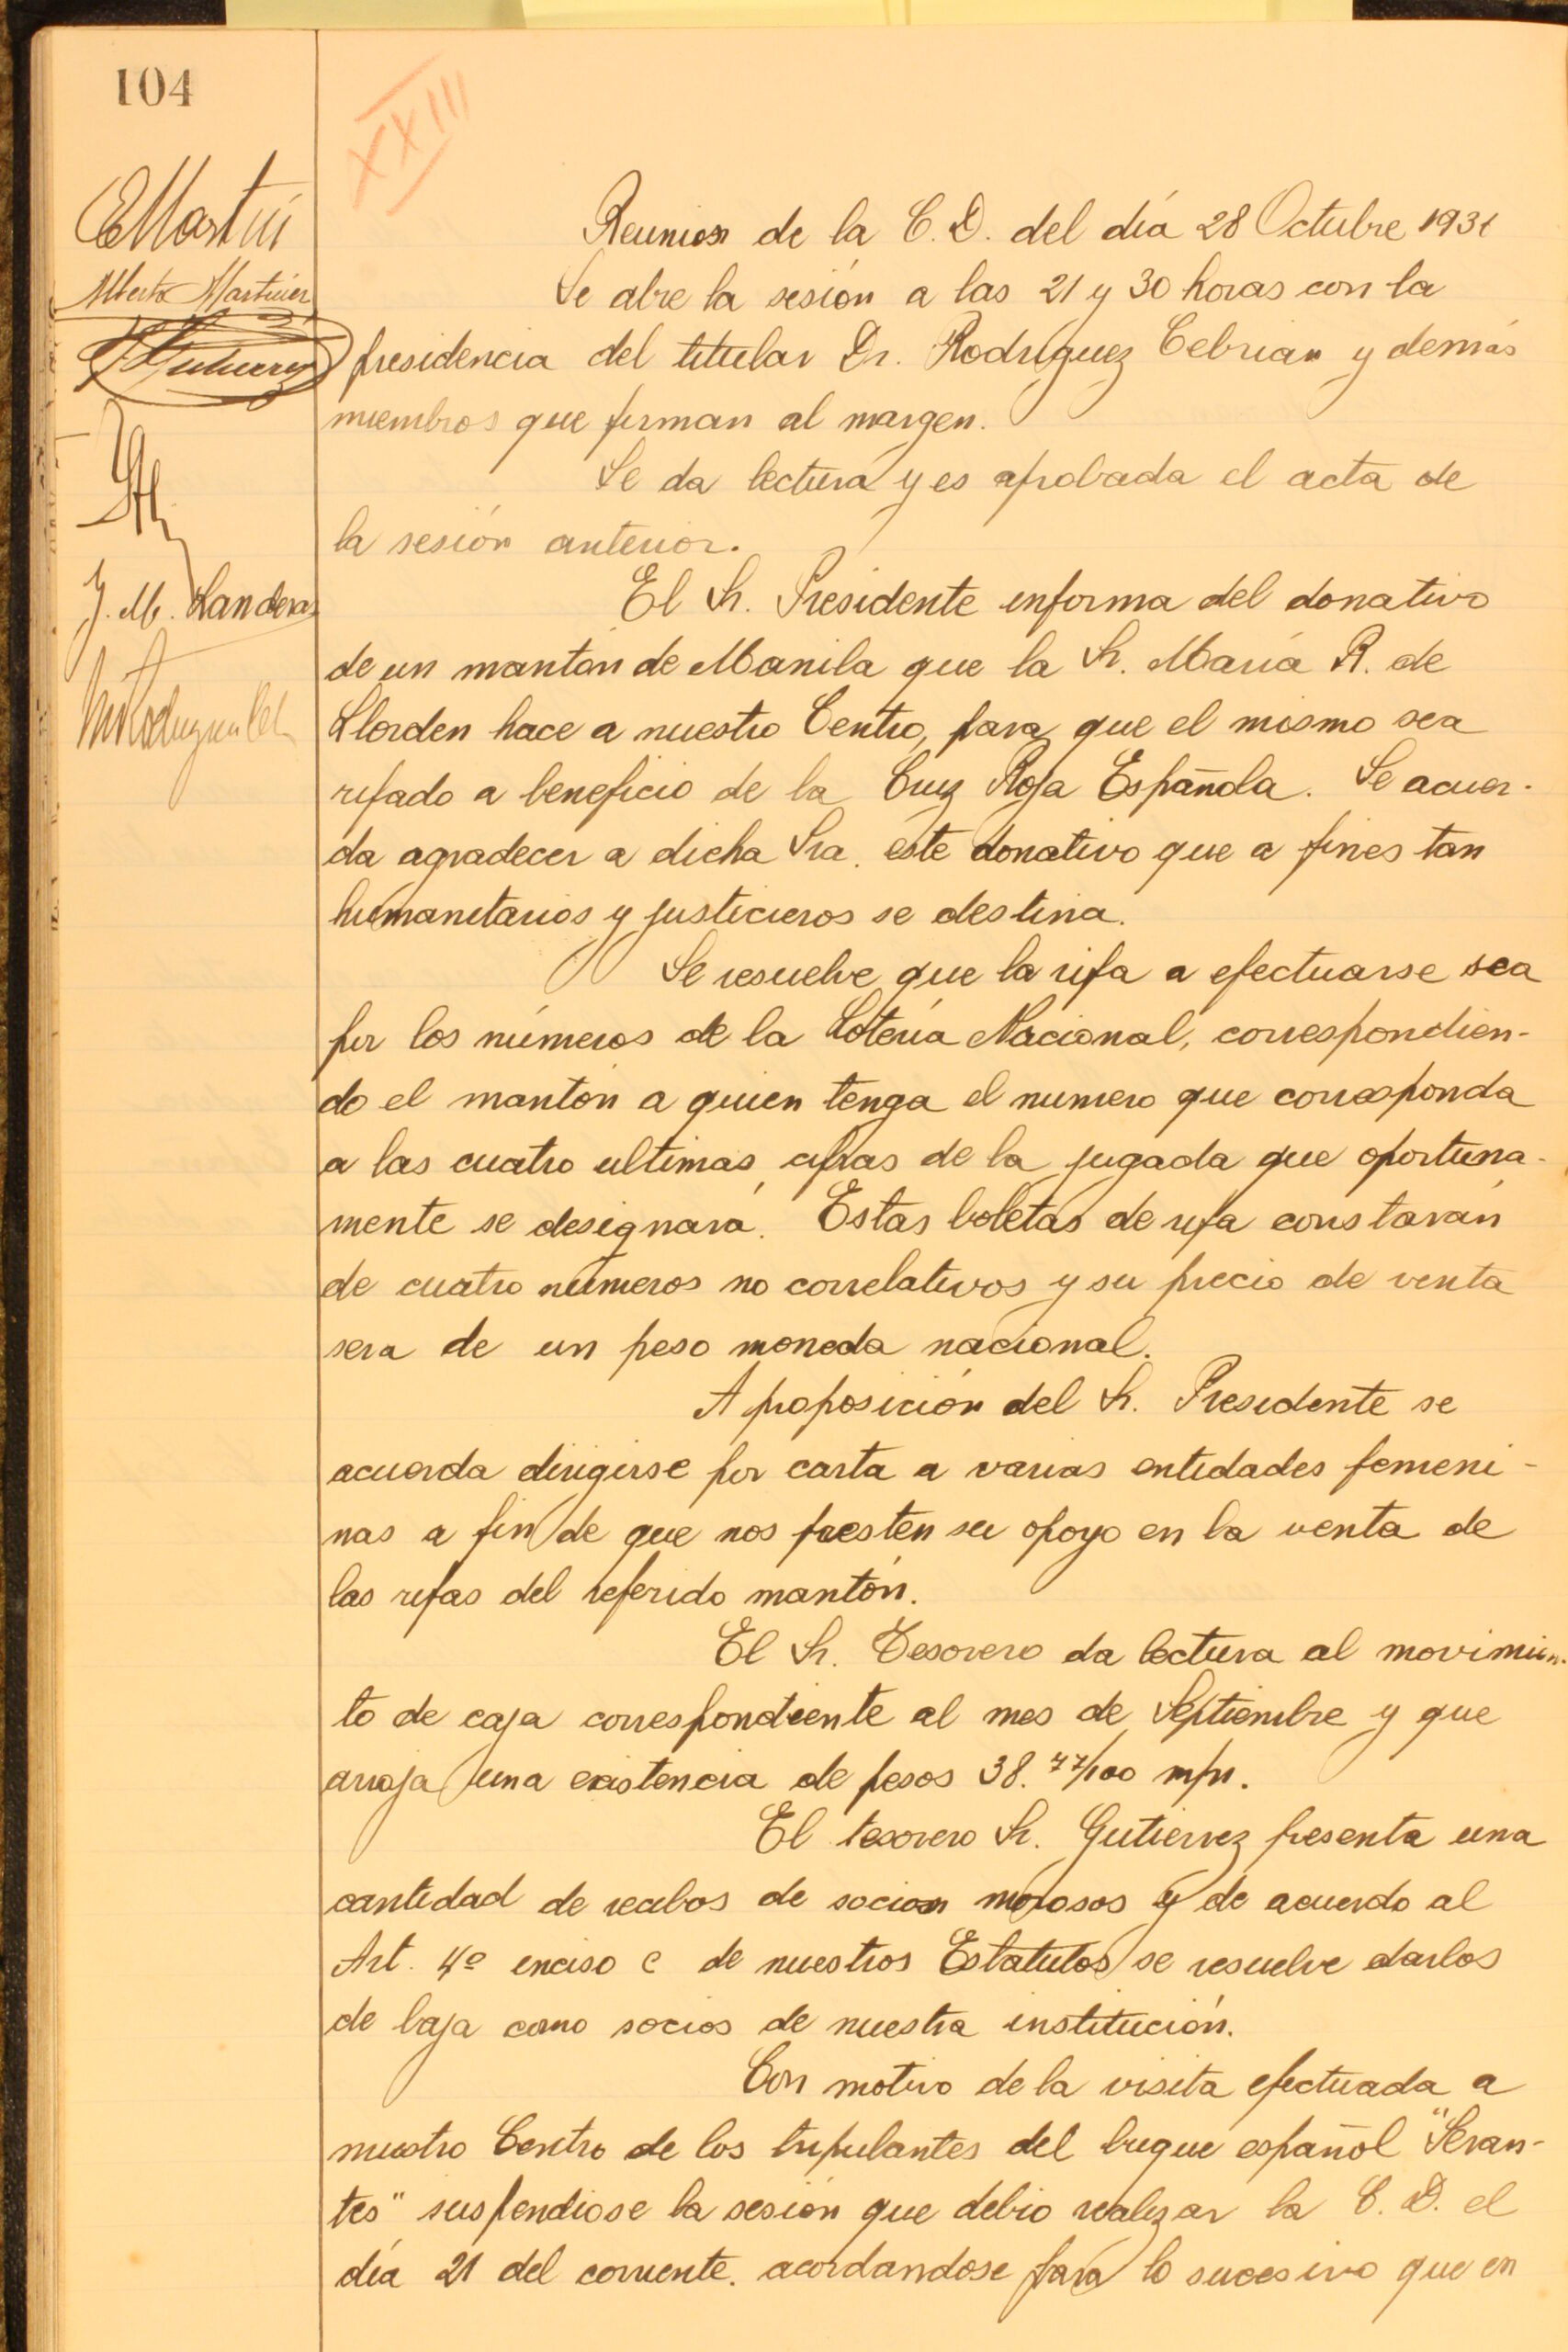 104
XXIII
EMartin
Alberto Martinez
Gutierrez
J. M. Landeras
Reunion de la C. D. del día 28 Octubre 1931
Se abre la sesión a las 21 y 30 horas con la
presidencia del titular Dr. Rodriguez Cebrian y demás
miembros que firman al margen.
Se da lectura y es aprobada el acta de
la sesión anterior.
El Sr. Presidente informa del donativo
de un mantón de Manila que la Sr. María R. de
Llorden hace a nuestro Centro, para que el mismo sea
rifado a beneficio de la Cruz Roja Española. Se acuer-
da agradecer a dicha Sra. este donativo que a fines tan
humanitarios y justicieros se destina.
Se resuelve que la rifa a efectuarse sea
por los números de la Lotería Nacional, correspondien-
do el mantón a quien tenga el numero que corresponda
a las cuatro ultimas cifras de la jugada que oportuna-
mente se designará. Estas boletas de rifa constarán
de cuatro números no correlativos y su precio de venta
sera de un peso moneda nacional.
A proposición del Sr. Presidente se
acuerda dirigirse por carta a varias entidades femeni-
nas a fin de que nos presten su apoyo en la venta de
las rifas del referido mantón.
El Sr. Tesorero da lectura al movimien-
to de caja correspondiente al mes de Septiembre y que
arroja una existencia de pesos 38.77/100 m/n.
El tesorero Sr. Gutierrez presenta una
cantidad de recibos de socios morosos y de acuerdo al
Art. 4º inciso c de nuestros Estatutos se resuelve darlos
de baja como socios de nuestra institución.
Con motivo de la visita efectuada a
nuestro Centro de los tripulantes del buque español "Seran-
tes" suspendiose la sesión que debio realizar la C. D. el
día 21 del corriente. acordandose para lo sucesivo que en